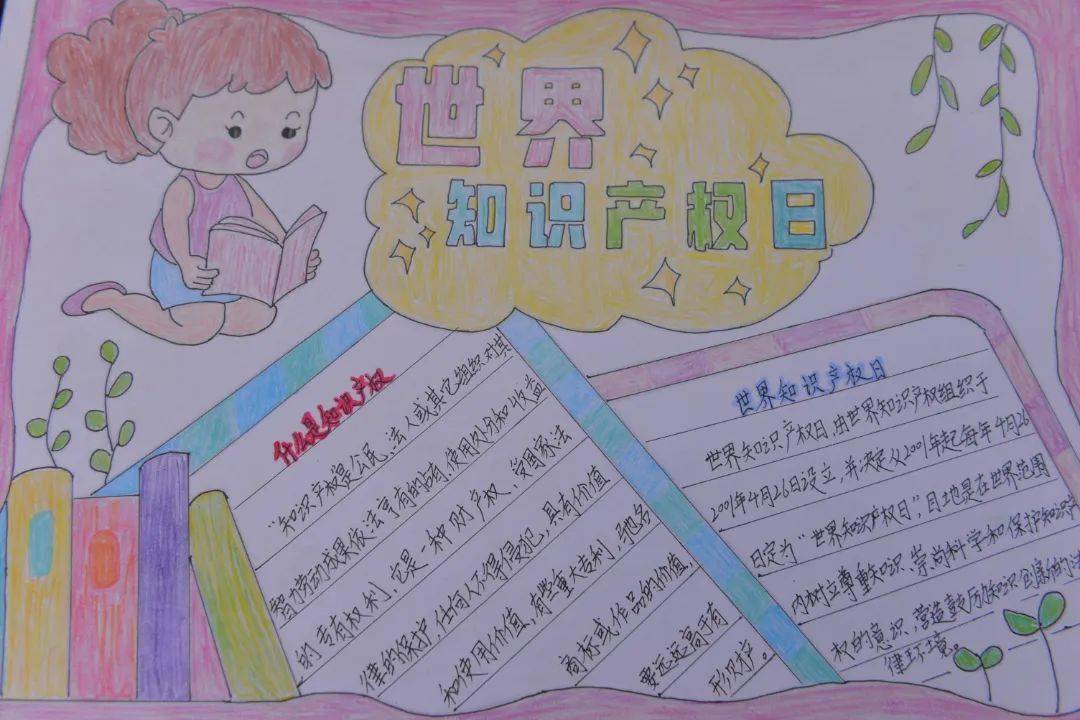 世界
知识产权日
什么是知识产权
"知识产权是公民、法人或其它组织对其
智力劳动成果依法享有的占有、使用处分和收益
的专有权利，它是一种财产权，受国家法
律的保护，任何人不得侵犯，具有价值
和使用价值，有些重大专利，驰名
商标或作品的价值，
要远远高于有
形
世界知识产权日
世界知识产权日，由世界知识产权组织于
2001年4月26日设立，并决定从2001年起每年4月26
日定为"世界知识产权日"，目地是在世界范围
内树立尊重知识、崇尚科学和保护知识产
权的意识，营造鼓历知识创
律环境。